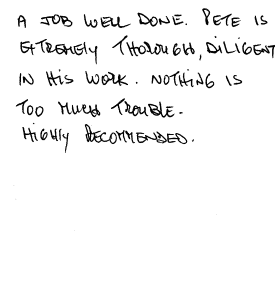 A JOB WELL DONE. PETE IS
EXTREMELY THOROUGH, DILIGENT
IN HIS WORK. NOTHING IS
TOO MUCH TROUBLE.
HIGHLY RECOMMENDED.